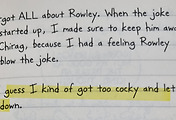 got ALL about Rowley. When the joke
started up, I made sure to keep him awa
Chirag, because I had a feeling Rowley
blow the joke.
guess I kind of got too cocky and let
down.